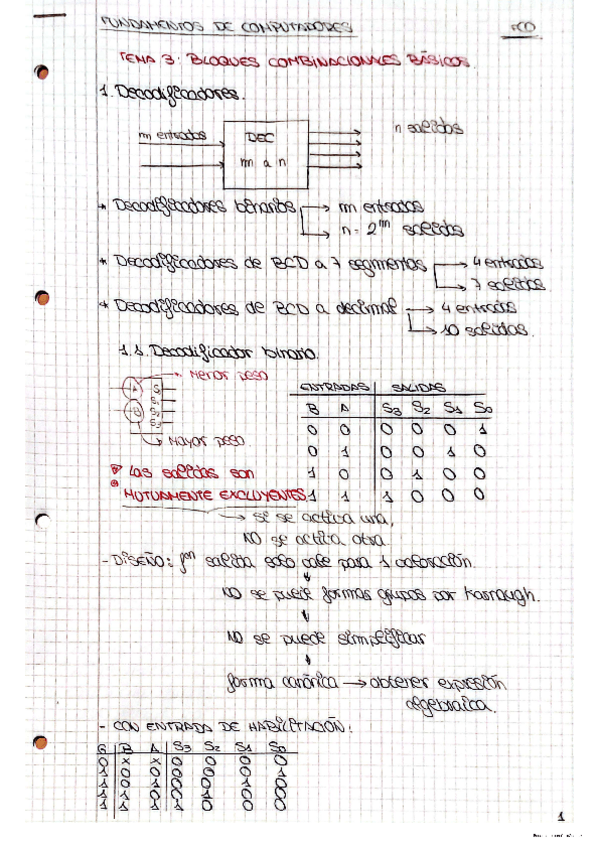 FUNDAMENTOS DE COMPUTADORES FCO
TEMA 3: BLOQUES COMBINACIONALES BÁSICOS.
1. Decodificadores.
m entradas DEC m a n n salidas
* Decodificadores binarios → m entradas
→ n = 2^m salidas
* Decodificadores de BCD a 7 segmentos → 4 entradas
→ 7 salidas
* Decodificadores de BCD a decimal → 4 entradas
→ 10 salidas.
1.1. Decodificador binario.
→ Menor peso
A S0
B S1
S2
S3
→ Mayor peso
ENTRADAS | SALIDAS
B A S3 S2 S1 S0
0 0 0 0 0 1
0 1 0 0 1 0
1 0 0 1 0 0
1 1 1 0 0 0
Las salidas son
MUTUAMENTE EXCLUYENTES
→ si se activa una,
NO se activa otra
- DISEÑO: fon salida solo vale para 1 valoración.
↓
NO se puede formas grupos por Karnaugh.
↓
NO se puede simplificar
↓
forma canónica → obtener expresión
algebraica.
- CON ENTRADA DE HABILITACIÓN:
G B A S3 S2 S1 S0
0 x x 0 0 0 0
1 0 0 0 0 0 1
1 0 1 0 0 1 0
1 1 0 0 1 0 0
1 1 1 1 0 0 0
1